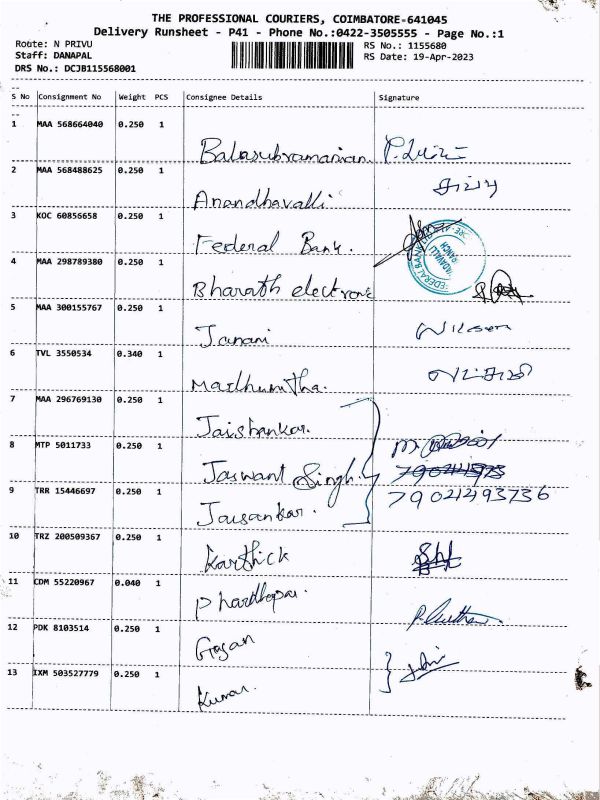 THE PROFESSIONAL COURIERS, COIMBATORE-641045
Delivery Runsheet - P41 - Phone No.:0422-3505555 - Page No.:1
Route: N PRIVU RS No.: 1155680
Staff: DANAPAL RS Date: 19-Apr-2023
DRS No.: DCJB115568001
S No Consignment No Weight PCS Consignee Details Signature
1 MAA 568664040 0.250 1
Balasubramanian
2 MAA 568488625 0.250 1
Anandhavalli
3 KOC 60856658 0.250 1
Federal Bank.
4 MAA 298789380 0.250 1
Bharath electronic
5 MAA 300155767 0.250 1
Janani
6 TVL 3550534 0.340 1
Madhumitha.
7 MAA 296769130 0.250 1
Jaishankar.
8 MTP 5011733 0.250 1
Jaswant Singh.
9 TRR 15446697 0.250 1
Jaisankar.
10 TRZ 200509367 0.250 1
Karthick
11 CDM 55220967 0.040 1
12 PDK 8103514 0.250 1
13 IXM 503527779 0.250 1
Kumar.